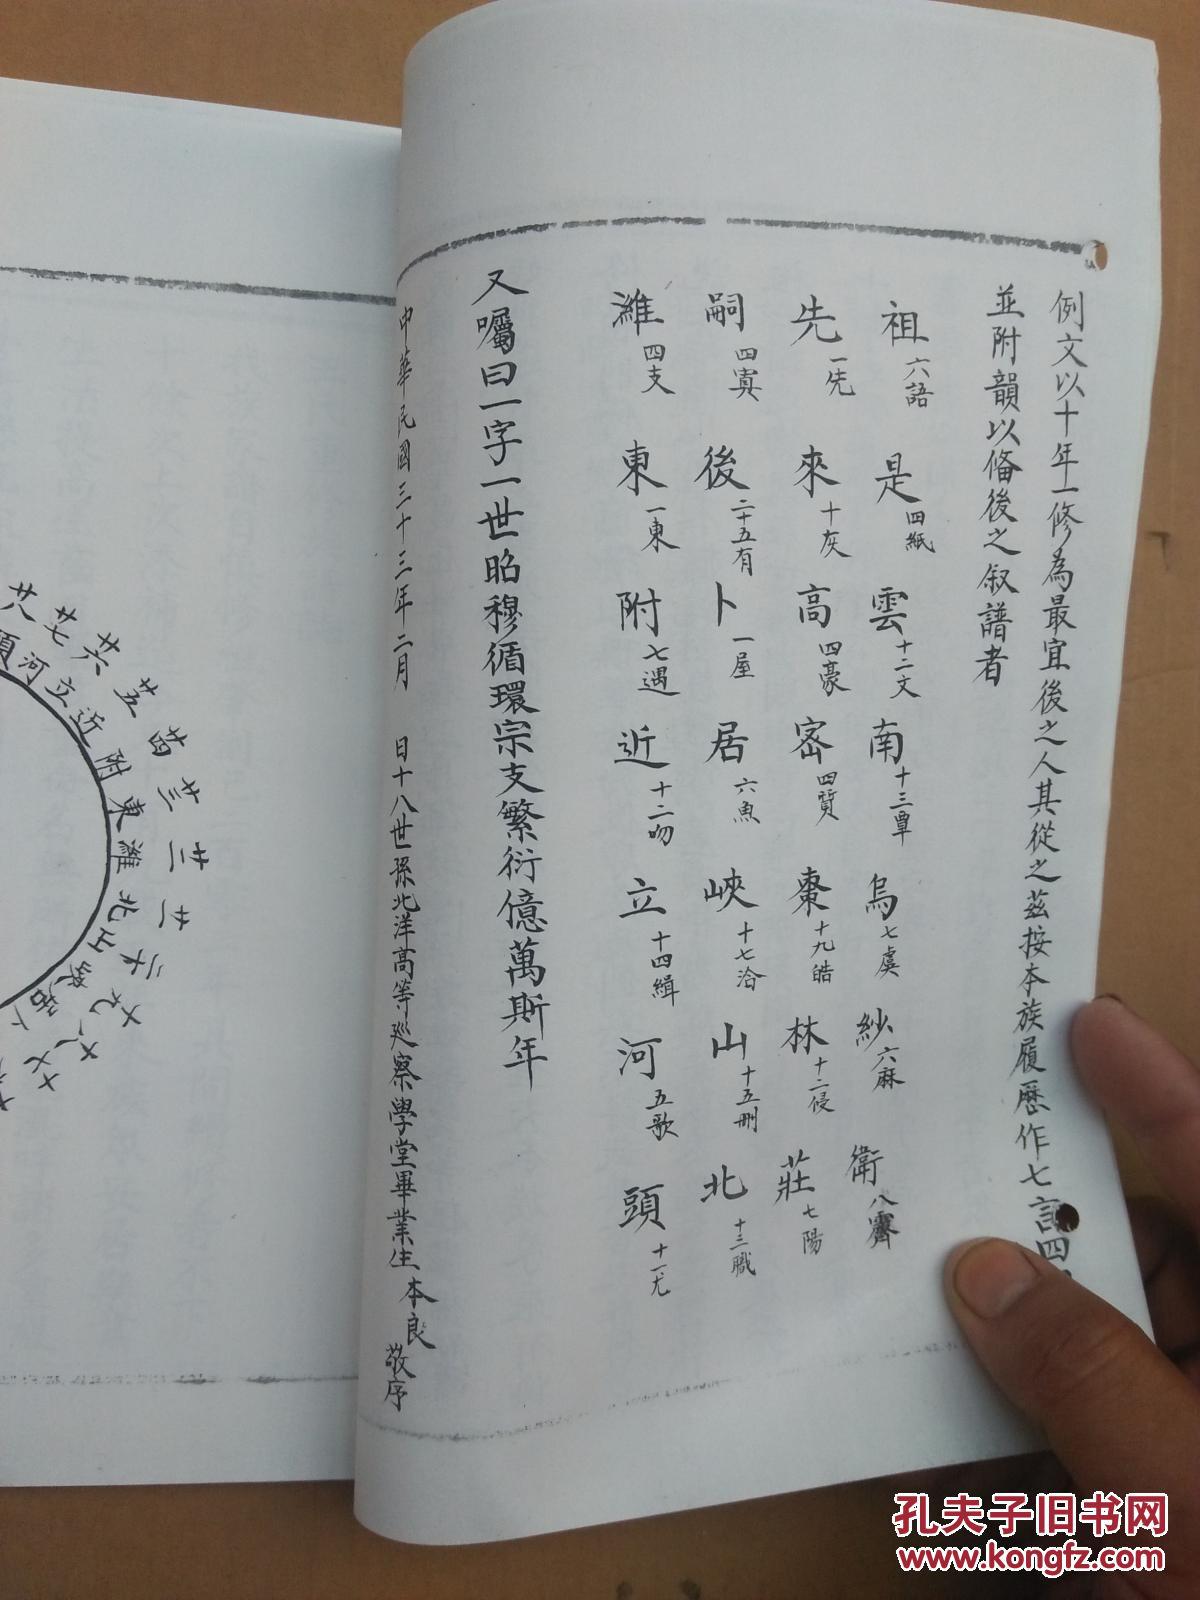 例文以十年一修為最宜後之人其從之茲按本族履歷作七言四
並附韻以備後之叙譜者
祖六語是四紙雲十二文南十三覃烏七虞紗六麻衛八霽
先一先來十灰高四豪密四質棗十九皓林十二侵莊七陽
嗣四寘後二十五有卜一屋居六魚峽十七洽山十五刪北十三職
濰四支東一東附七遇近十二吻立十四緝河五歌頭十一尤
又囑曰一字一世昭穆循環宗支繁衍億萬斯年
中華民國三十三年二月 日十八世孫北洋高等巡察學堂畢業生本良敬序
廿八 廿七 廿六 廿五 廿四 廿三 廿二 廿一 二十 十九 十八 十七
頭河立近附東濰北山峽居卜
孔夫子旧书网
www.kongfz.com